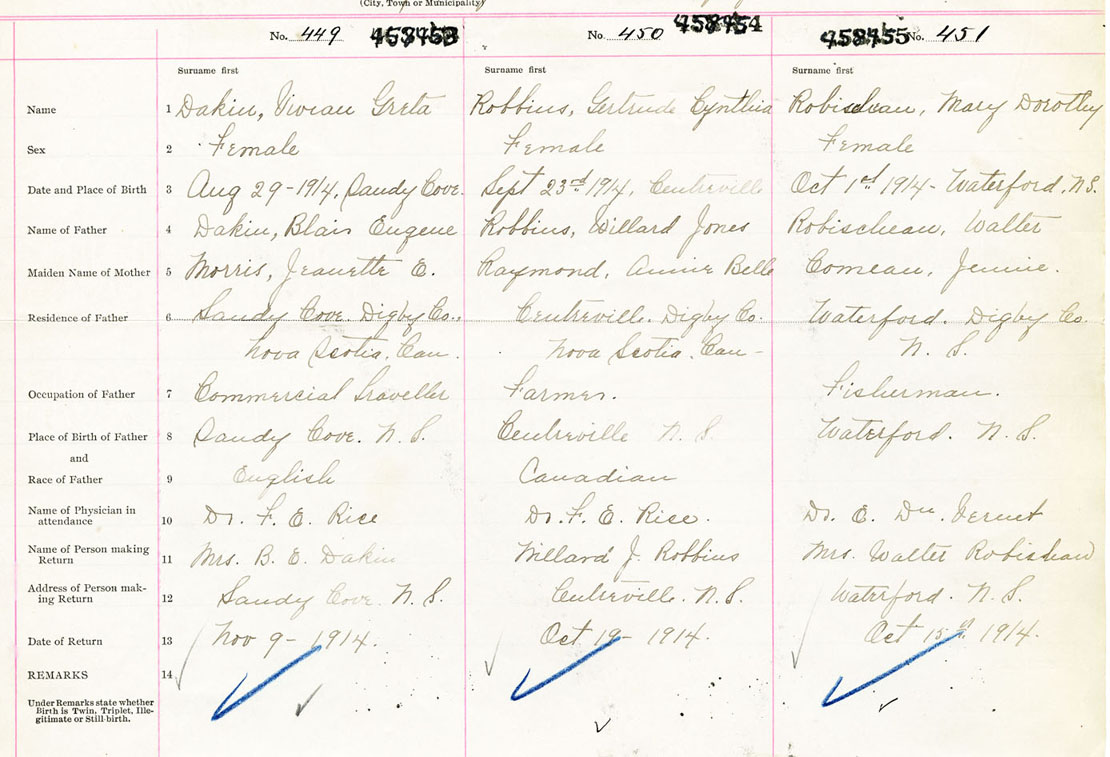 (City, Town or Municipality)
No. 449 458453 No. 450 458454 458455 No. 451
Surname first Surname first Surname first
Name 1 Dakin, Vivian Greta Robbins, Gertrude Cynthia Robischeau, Mary Dorothy
Sex 2 Female Female Female
Date and Place of Birth 3 Aug 29-1914, Sandy Cove. Sept 23rd 1914, Centreville Oct 1st 1914- Waterford, N.S.
Name of Father 4 Dakin, Blair Eugene Robbins, Willard Jones Robischeau, Walter
Maiden Name of Mother 5 Morris, Jeanette E. Raymond, Annie Belle Comeau, Jennie.
Residence of Father 6 Sandy Cove. Digby Co., Centreville. Digby Co. Waterford. Digby Co.
Nova Scotia. Can. Nova Scotia. Can- N. S.
Occupation of Father 7 Commercial Traveller Farmer. Fisherman.
Place of Birth of Father 8 Sandy Cove. N. S. Centreville N. S. Waterford. N. S.
and
Race of Father 9 English Canadian
Name of Physician in
attendance 10 Dr. F. E. Rice Dr. F. E. Rice. Dr. E. Du Vernet
Name of Person making
Return 11 Mrs. B. E. Dakin Willard J. Robbins Mrs. Walter Robischeau
Address of Person mak-
ing Return 12 Sandy Cove. N. S. Centreville. N. S. Waterford. N. S.
Date of Return 13 Nov 9- 1914. Oct 19- 1914. Oct 15 1914.
REMARKS 14
Under Remarks state whether
Birth is Twin, Triplet, Ille-
gitimate or Still-birth.